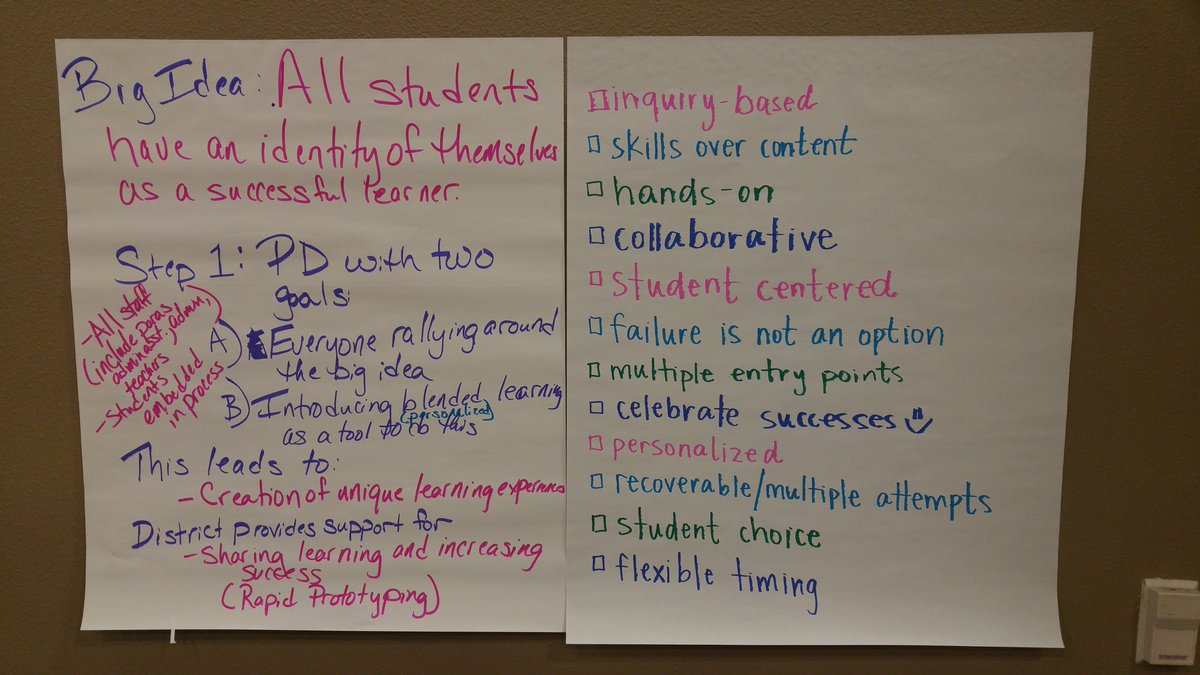 Big Idea: All students
have an identity of themselves
as a successful learner.
Step 1: PD with two
goals:
-All staff
(include paras,
adminasst, admin,
teachers
-Students
embedded
in process
A) Everyone rallying around
the big idea
B) Introducing blended learning
(personalized)
as a tool to do this
This leads to:
-Creation of unique learning experiences
District provides support for
-Sharing learning and increasing
success
(Rapid Prototyping)
inquiry-based
skills over content
hands-on
collaborative
student centered
failure is not an option
multiple entry points
celebrate successes
personalized
recoverable/multiple attempts
student choice
flexible timing